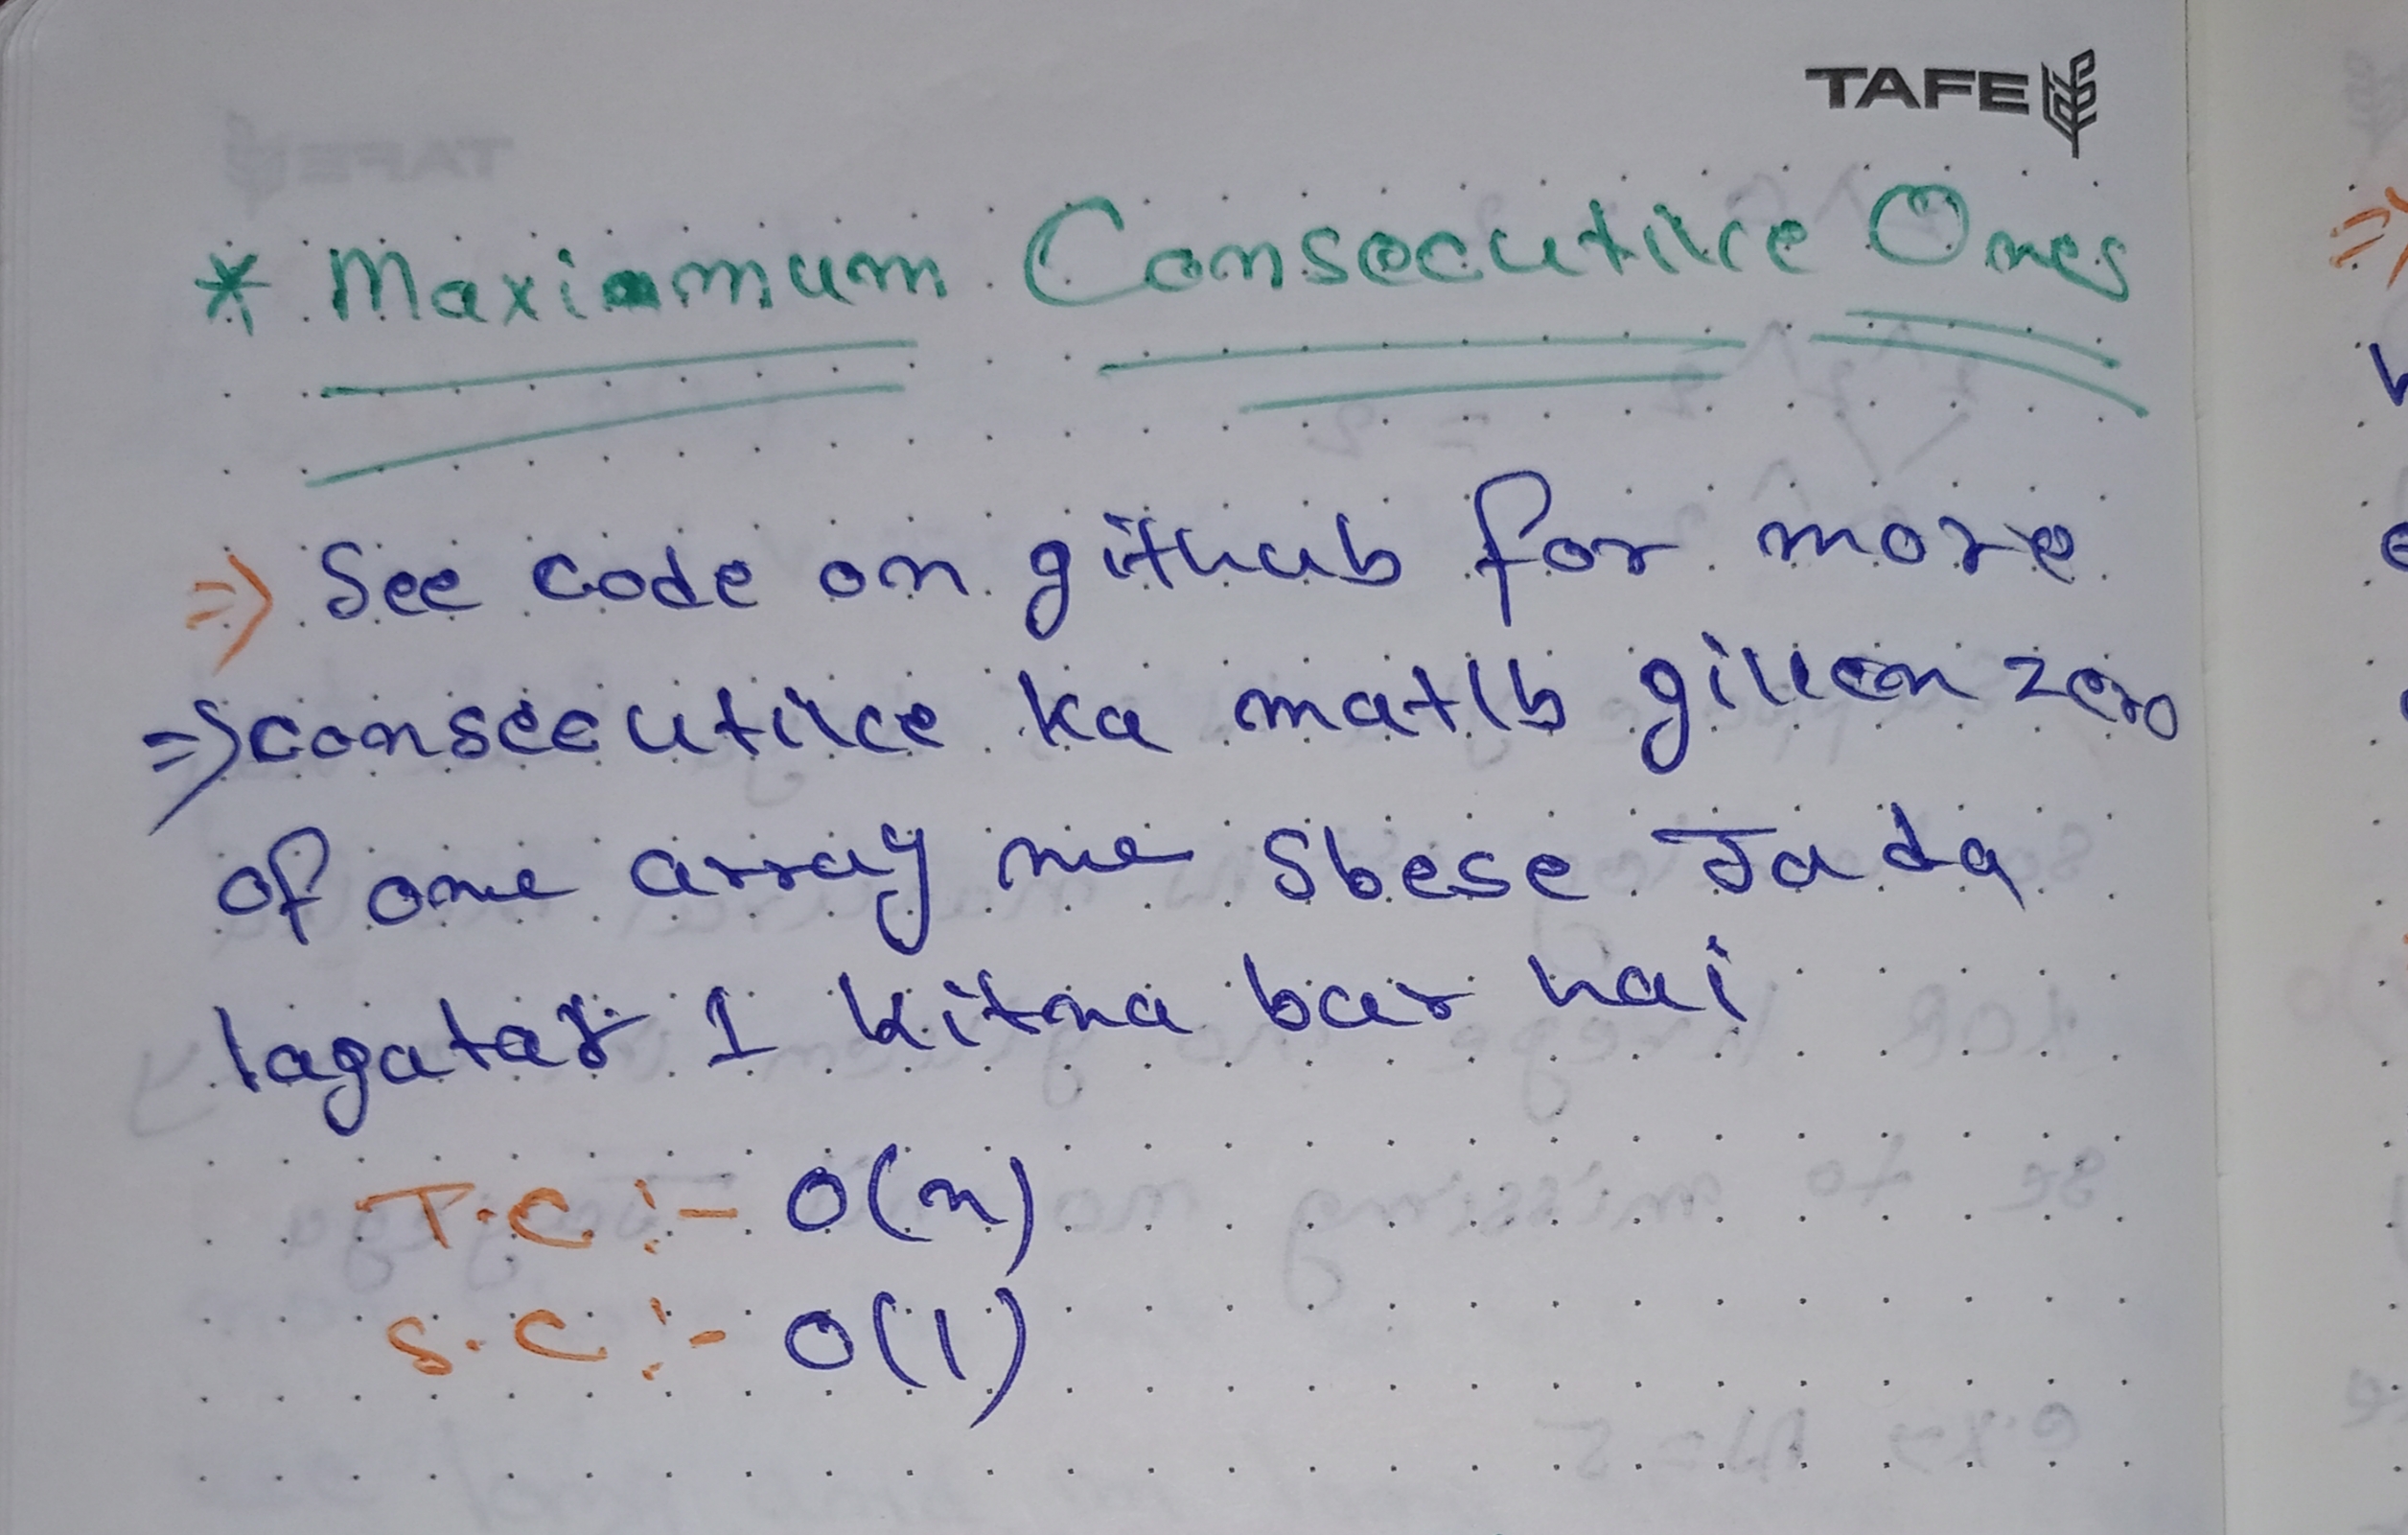 TAFE
* Maximum Consecutive Ones
⇒ See code on github for more
⇒ consecutive ka matlb given zero
of one array me Sbese Jada
lagatar 1 kitna bar hai
T.C :- O(n)
S.C :- O(1)